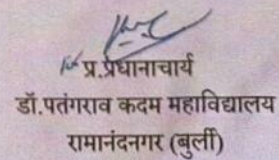 प्र.प्रधानाचार्य
डॉ.पतंगराव कदम महाविद्यालय
रामानंदनगर (बुर्ली)